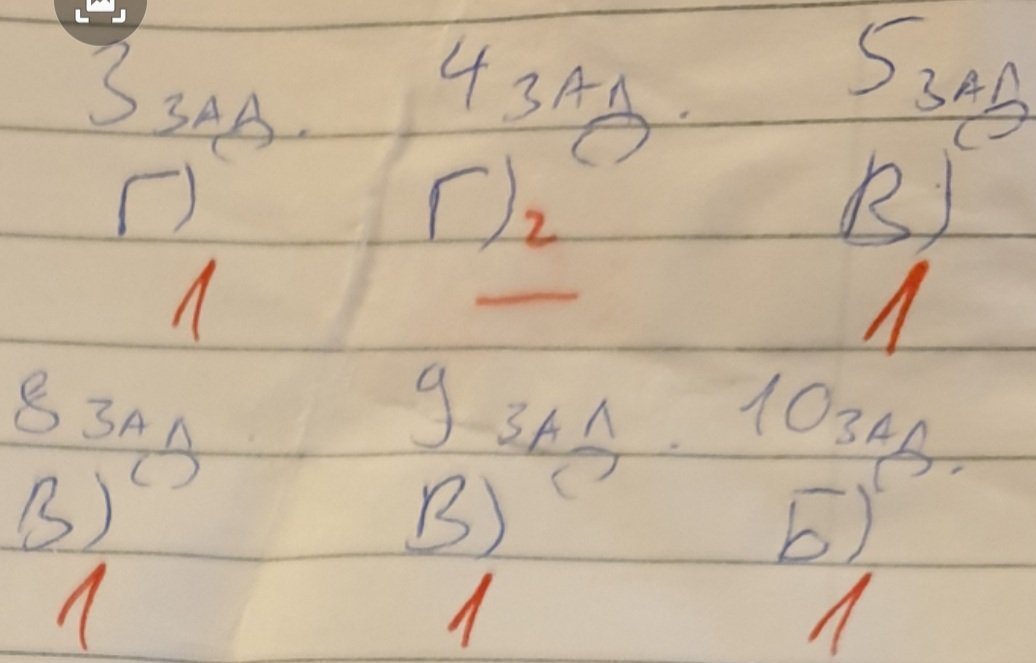 3 ЗАД. 4 ЗАД. 5 ЗАД
Г) Г) 2 В)
1 — 1
8 ЗАД 9 ЗАД. 10 ЗАД.
В) В) Б)
1 1 1